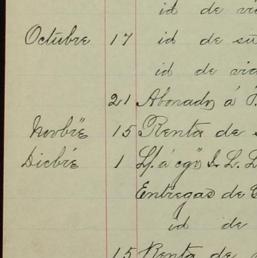 id de vi
Octubre 17 id de su
id de via
21 Abonado á
Novbre 15 Renta de s
Dicbre 1 L/. á cgo. I. L. L
Entregas de C
id de
15 Renta de s